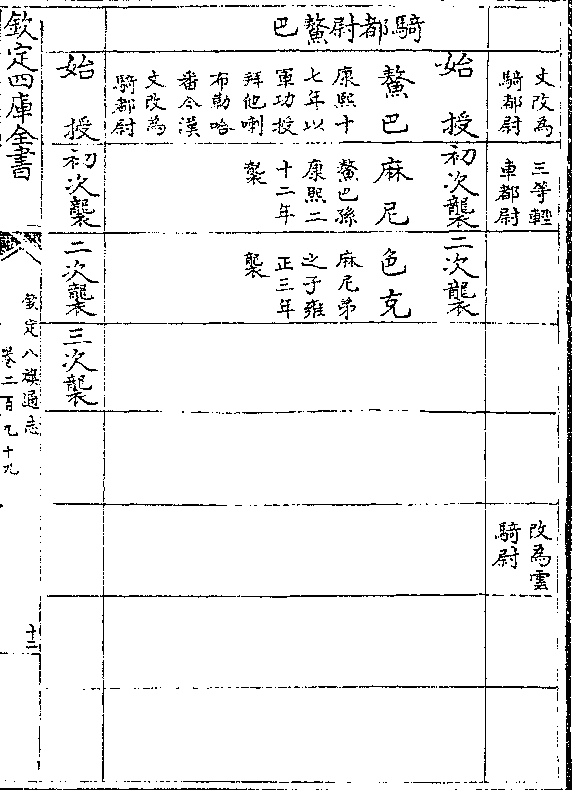 文改為
騎都尉
三等輕
車都尉
改為雲
騎尉
騎都尉鰲巴
始授
初次襲
二次襲
鰲巴
康熙十
七年以
軍功授
拜他喇
布勒哈
番今漢
文改為
騎都尉
麻尼
鰲巴孫
康熙二
十二年
襲
色克
麻尼弟
之子雍
正三年
襲
始授
初次襲
二次襲
三次襲
欽定四庫全書
欽定八旗通志
卷二百十九